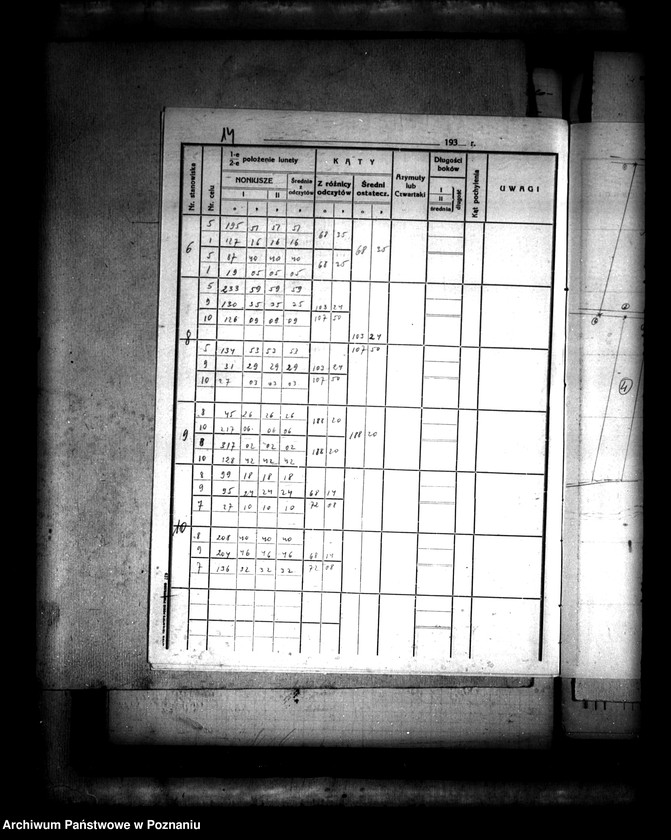 14
193 r.
Nr. stanowiska
Nr. celu
1-e
2-e położenie lunety
NONIUSZE
I II
Średnie z odczytów
KĄTY
Z różnicy odczytów
Średni ostatecz.
Azymuty lub Czwartaki
Długości boków
I
II
średnia
długość
Kąt pochylenia
UWAGI
6
5 195 51 51 51
68 35
1 127 16 16 16
68 35
5 87 40 40 40
1 19 05 05 05
68 35
8
5 233 59 59 59
9 130 35 35 35 103 24
10 126 09 09 09 107 50
103 24
107 50
5 134 53 53 53
9 31 29 29 29 103 24
10 27 03 03 03 107 50
9
8 45 26 26 26
188 20
10 217 06 06 06
188 20
8 317 02 02 02
188 20
10 128 42 42 42
10
8 99 18 18 18
9 95 24 24 24 68 14
7 27 10 10 10 72 08
8 208 40 40 40
9 204 46 46 46 68 14
7 136 32 32 32 72 08
4
Archiwum Państwowe w Poznaniu